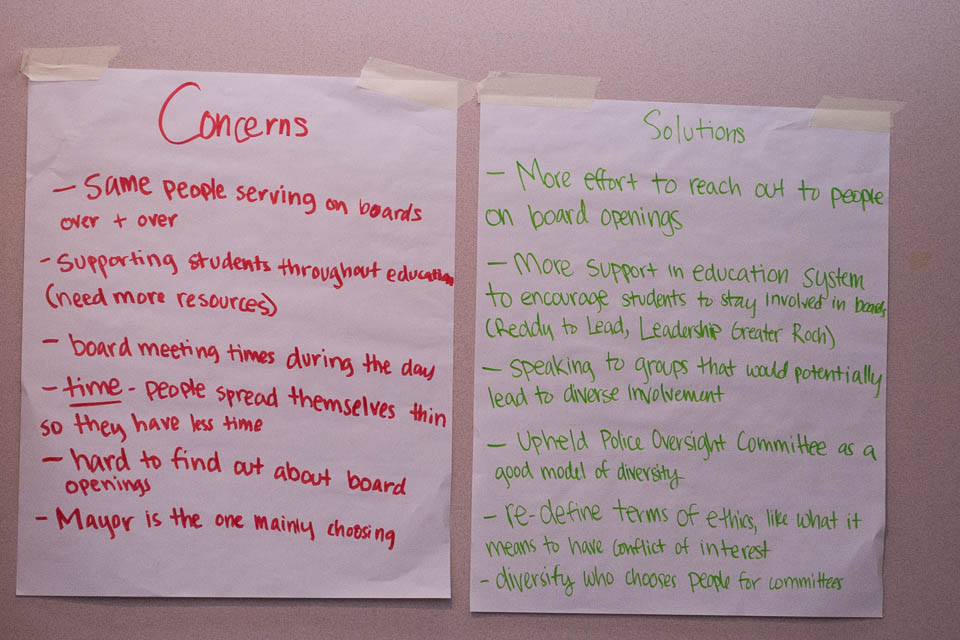 Concerns
- Same people serving on boards
over + over
- supporting students throughout education
(need more resources)
- board meeting times during the day
- time - people spread themselves thin
so they have less time
- hard to find out about board
openings
- Mayor is the one mainly choosing
Solutions
- More effort to reach out to people
on board openings
- More support in education system
to encourage students to stay involved in boards
(Reddy to Lead, Leadership Greater Roch)
- speaking to groups that would potentially
lead to diverse involvement
- Upheld Police Oversight Committee as a
good model of diversity
- re-define terms of ethics, like what it
means to have conflict of interest
- diversify who chooses people for committees